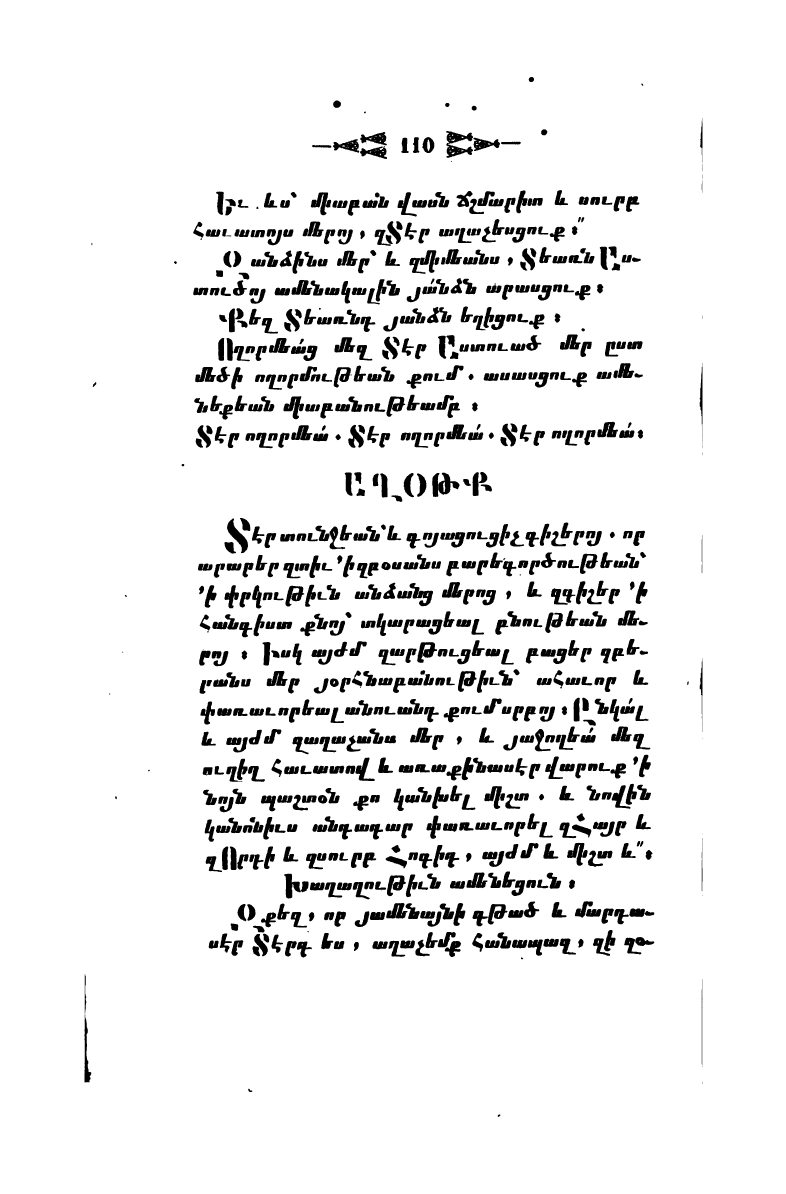 110
Եւ ևս՝ միաբան վասն ճշմարիտ և սուրբ
հաւատոյս մերոյ, զՏէր աղաչեսցուք։՞
Զանձինս մեր՝ և զմիմեանս, Տեառն Աս-
տուծոյ ամենակալին յանձն արասցուք։
Քեզ Տեառնդ յանձն եղիցուք։
Ողորմեա՛ց մեզ Տէր Աստուած մեր ըստ
մեծի ողորմութեան քում. ասասցուք ամե-
նեքեան միաբանութեամբ։
Տէր ողորմեա՛. Տէր ողորմեա՛. Տէր ողորմեա՛։
ԱՂՕԹՔ
Տէր տունջեան՝ և գոյացուցիչ գիշերոյ. որ
արարեր զտիւ ՚ի զբօսանս բարեգործութեան՝
՚ի փրկութիւն անձանց մերոց, և զգիշեր ՚ի
հանգիստ քնոյ՝ տկարացեալ բնութեան մե-
րոյ։ Իսկ այժմ զարթուցեալ բացեր զբե-
րանս մեր յօրհնաբանութիւն՝ ահաւոր և
փառաւորեալ անուանդ քում սրբոյ։ Ընկա՛լ
և այժմ զաղաչանս մեր, և յաջողեա՛ մեզ
ուղիղ հաւատով և առաքինասէր վարուք ՚ի
նոյն պաշտօն քո կանխել միշտ. և նովին
կանոնիւս անդադար փառաւորել զՀայր և
զՈրդի և զսուրբ Հոգիդ, այժմ և միշտ և՞։
Խաղաղութիւն ամենեցուն։
Զքեզ, որ յամենայնի գթած և մարդա-
սէր Տէրդ ես, աղաչեմք հանապազ, զի զօ-